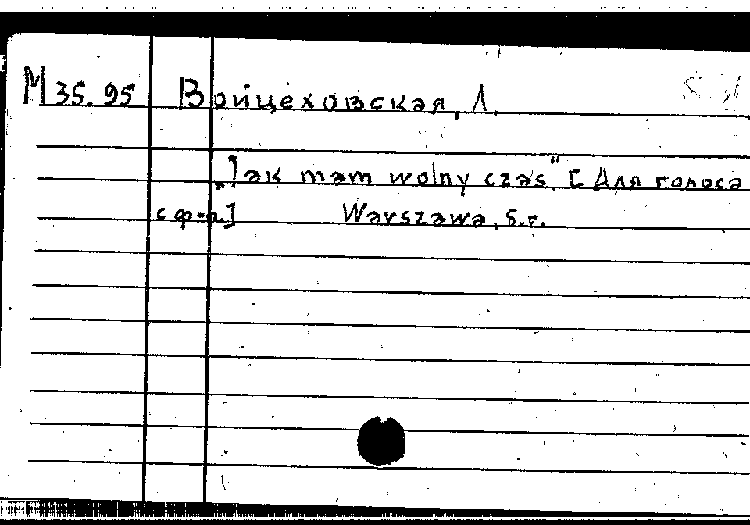 М 35.95 Войцеховская, Л.
„Jak mam wolny czas" [Для голоса
с ф-п.] Warszawa, б.г.